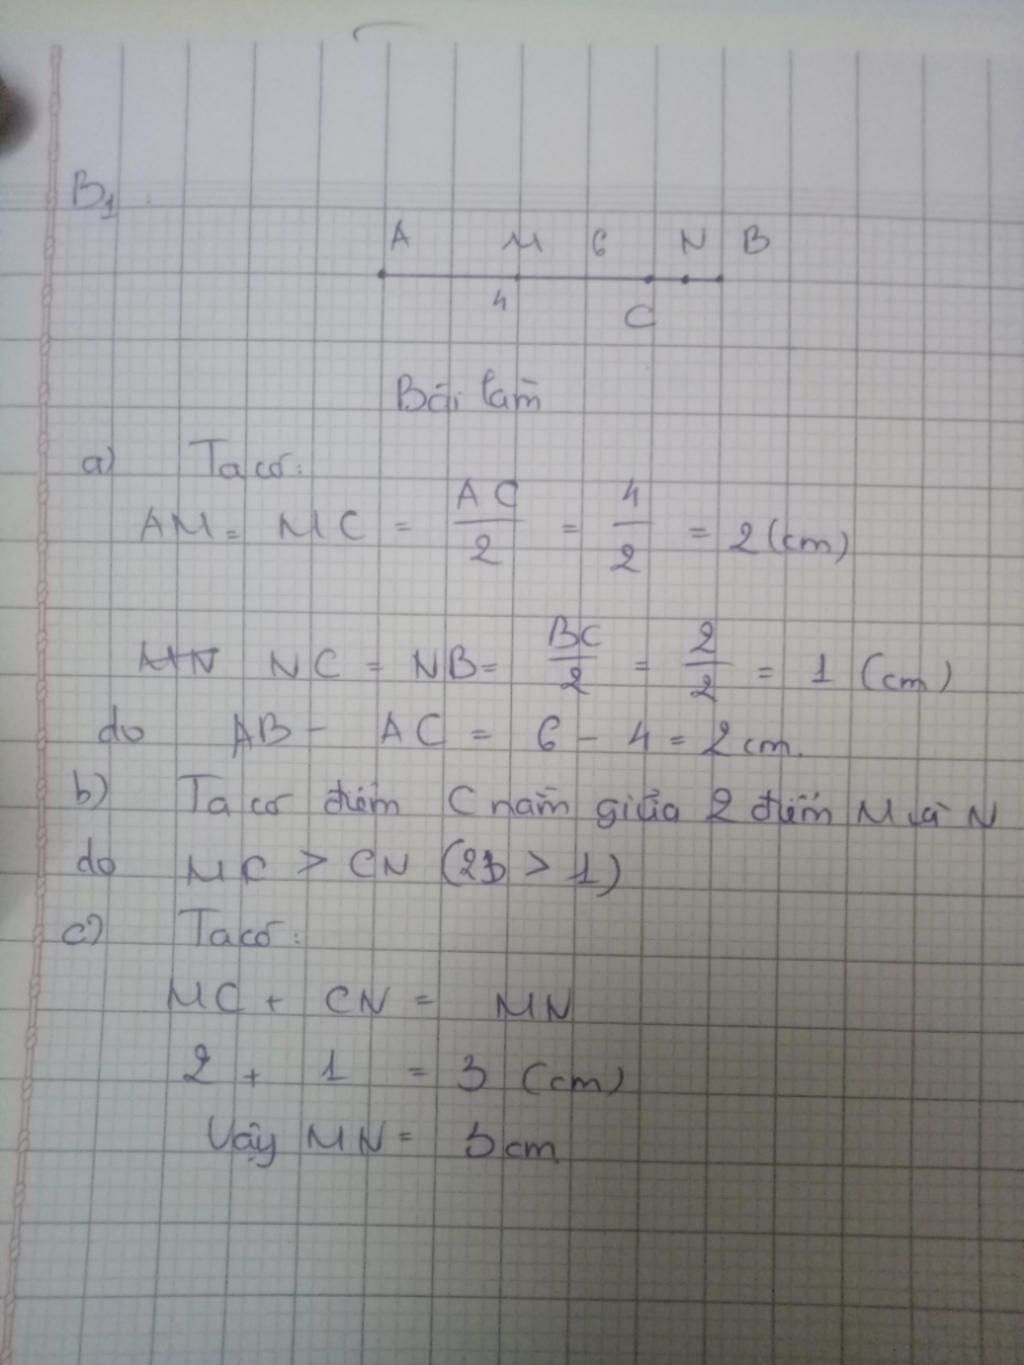 B1
A M 6 N B
4 C
Bài làm
a) Ta có:
AM = MC = AC/2 = 4/2 = 2 (cm)
MN NC = NB = BC/2 = 2/2 = 1 (cm)
do AB - AC = 6 - 4 = 2 cm.
b) Ta có điểm C nằm giữa 2 điểm M và N
do MC > CN ( > 1)
c) Ta có:
MC + CN = MN
2 + 1 = 3 (cm)
Vậy MN = 3 cm